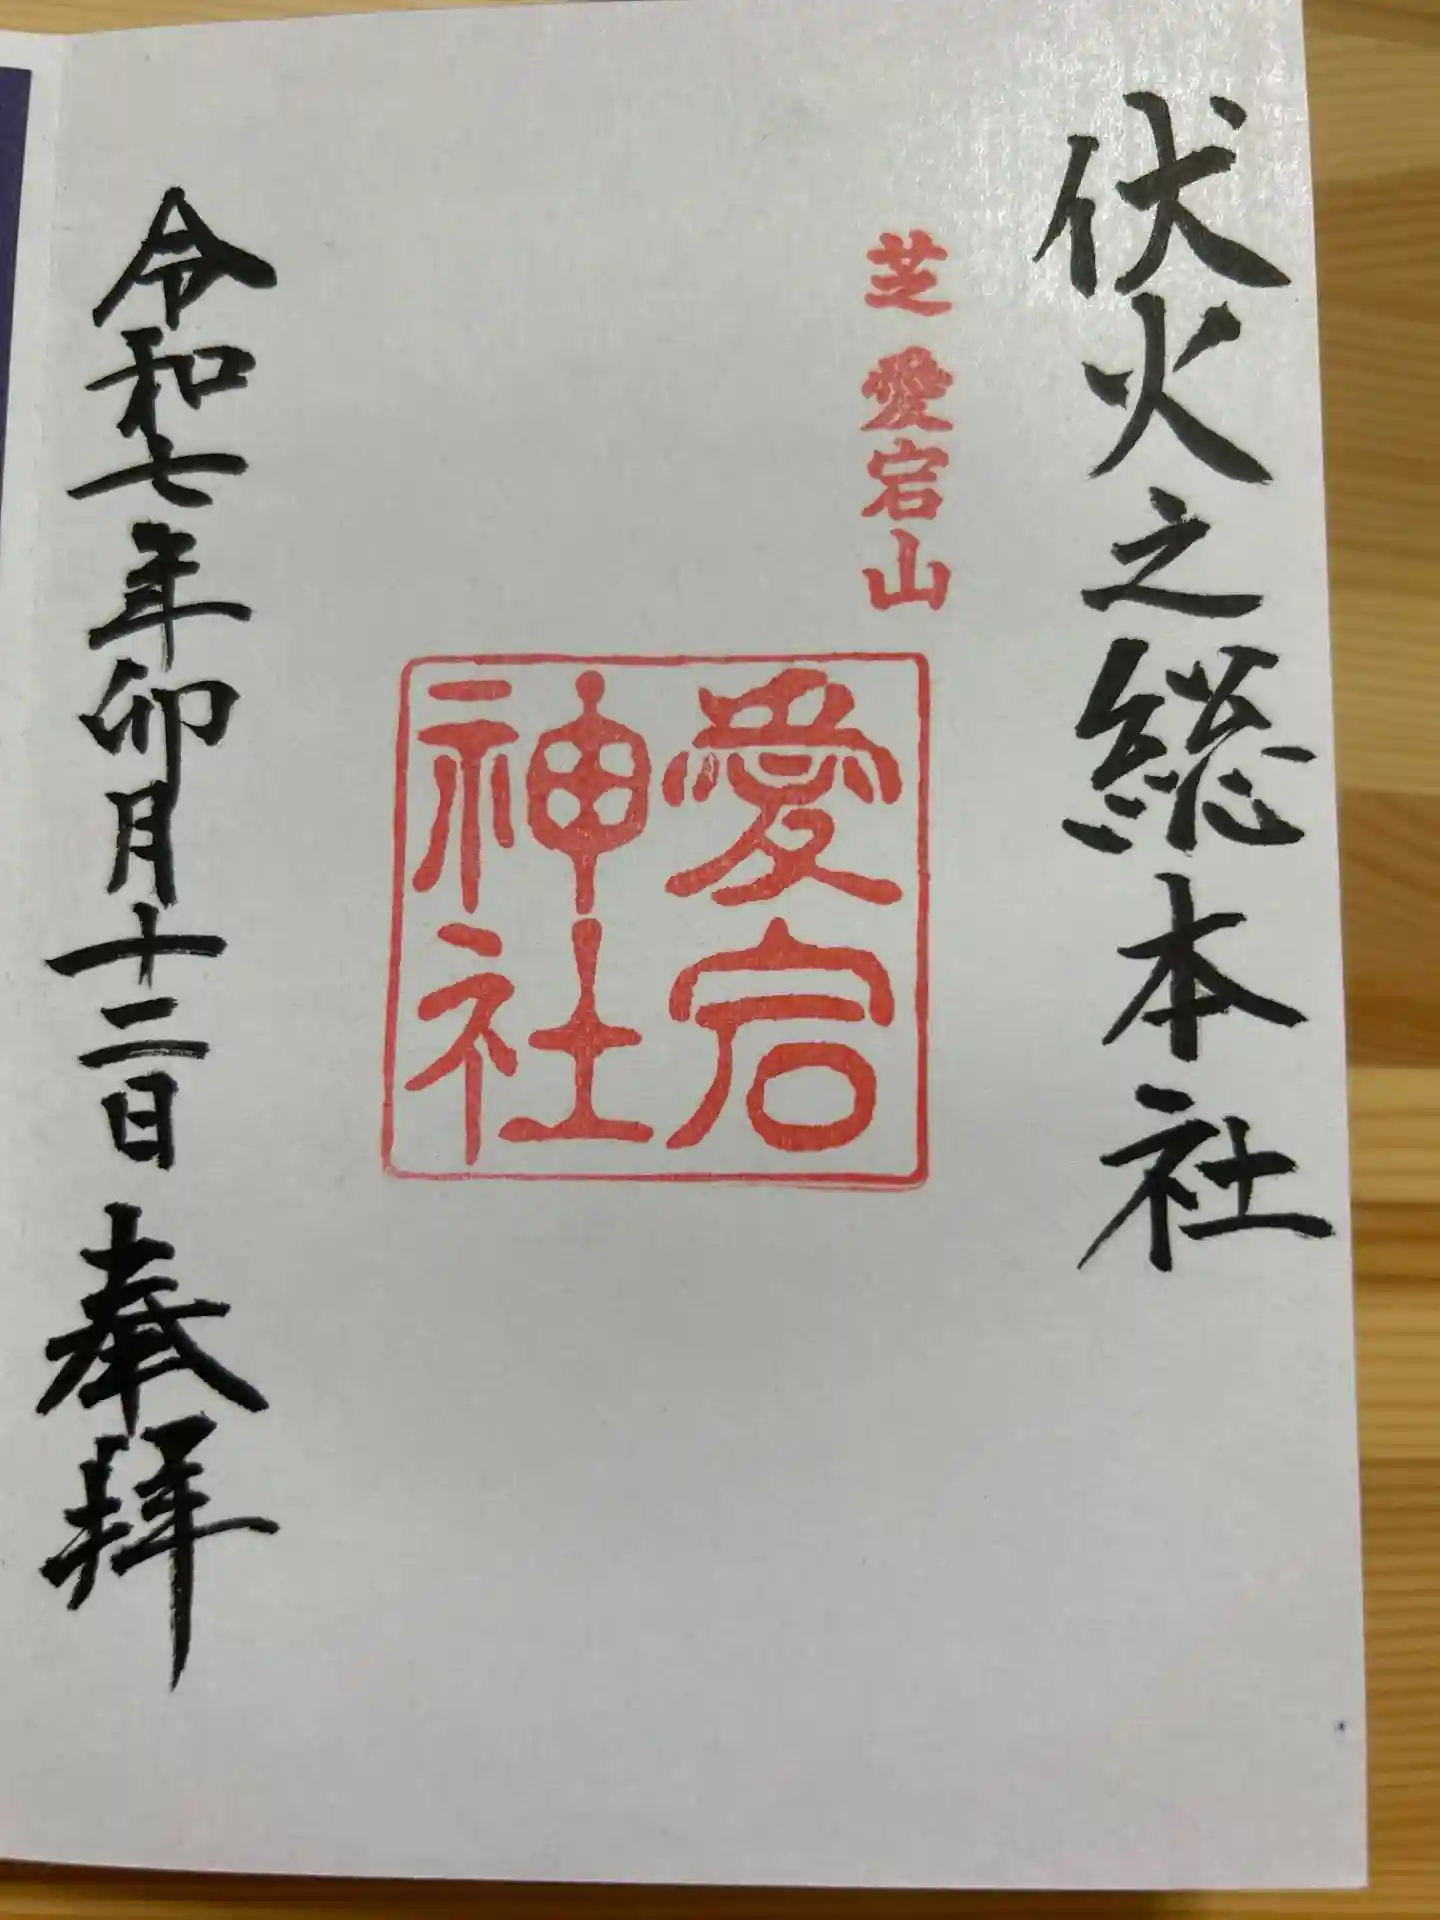 伏火之総本社
芝 愛宕山
愛宕
神社
令和七年卯月十二日 奉拝